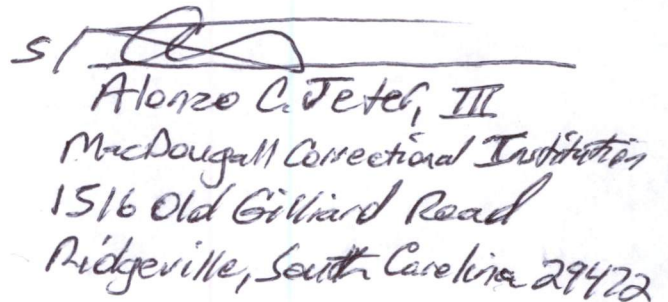 s/
Alonzo C. Jeter, III
MacDougall Correctional Institution
1516 Old Gilliard Road
Ridgeville, South Carolina 29472